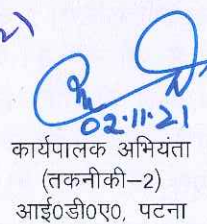 2)
02.11.21
कार्यपालक अभियंता
(तकनीकी–2)
आई0डी0ए0, पटना